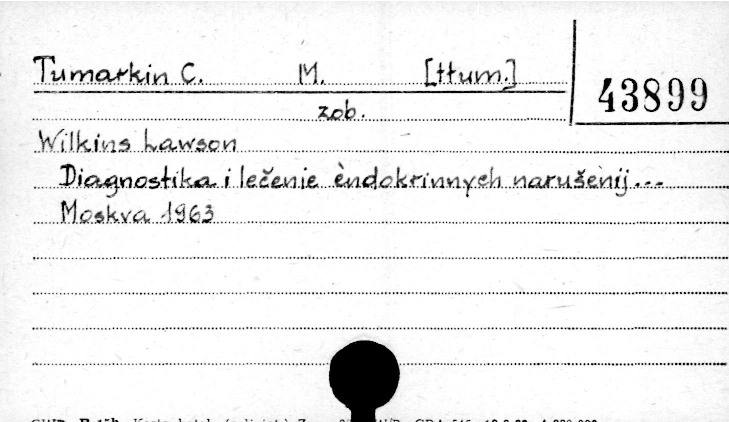 Tumarkin C. M. [tłum.]
43899
zob.
Wilkins Lawson
Diagnostika i lečenie èndokrinnych narušenij...
Moskva 1963